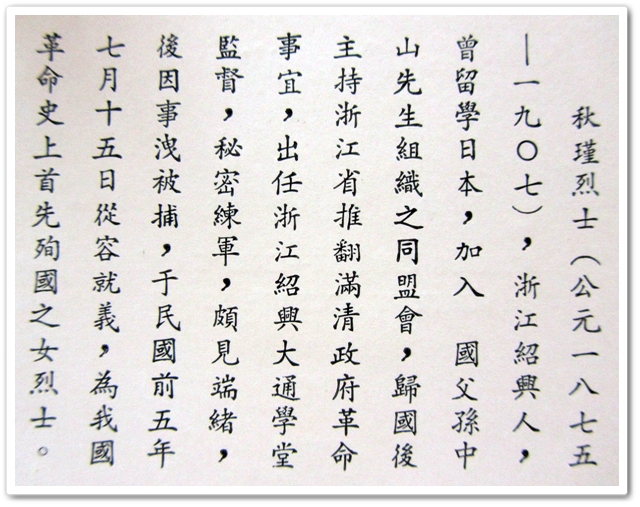 秋瑾烈士（公元一八七五
—一九〇七），浙江紹興人，
曾留學日本，加入　國父孫中
山先生組織之同盟會，歸國後
主持浙江省推翻滿清政府革命
事宜，出任浙江紹興大通學堂
監督，秘密練軍，頗見端緒，
後因事洩被捕，于民國前五年
七月十五日從容就義，為我國
革命史上首先殉國之女烈士。